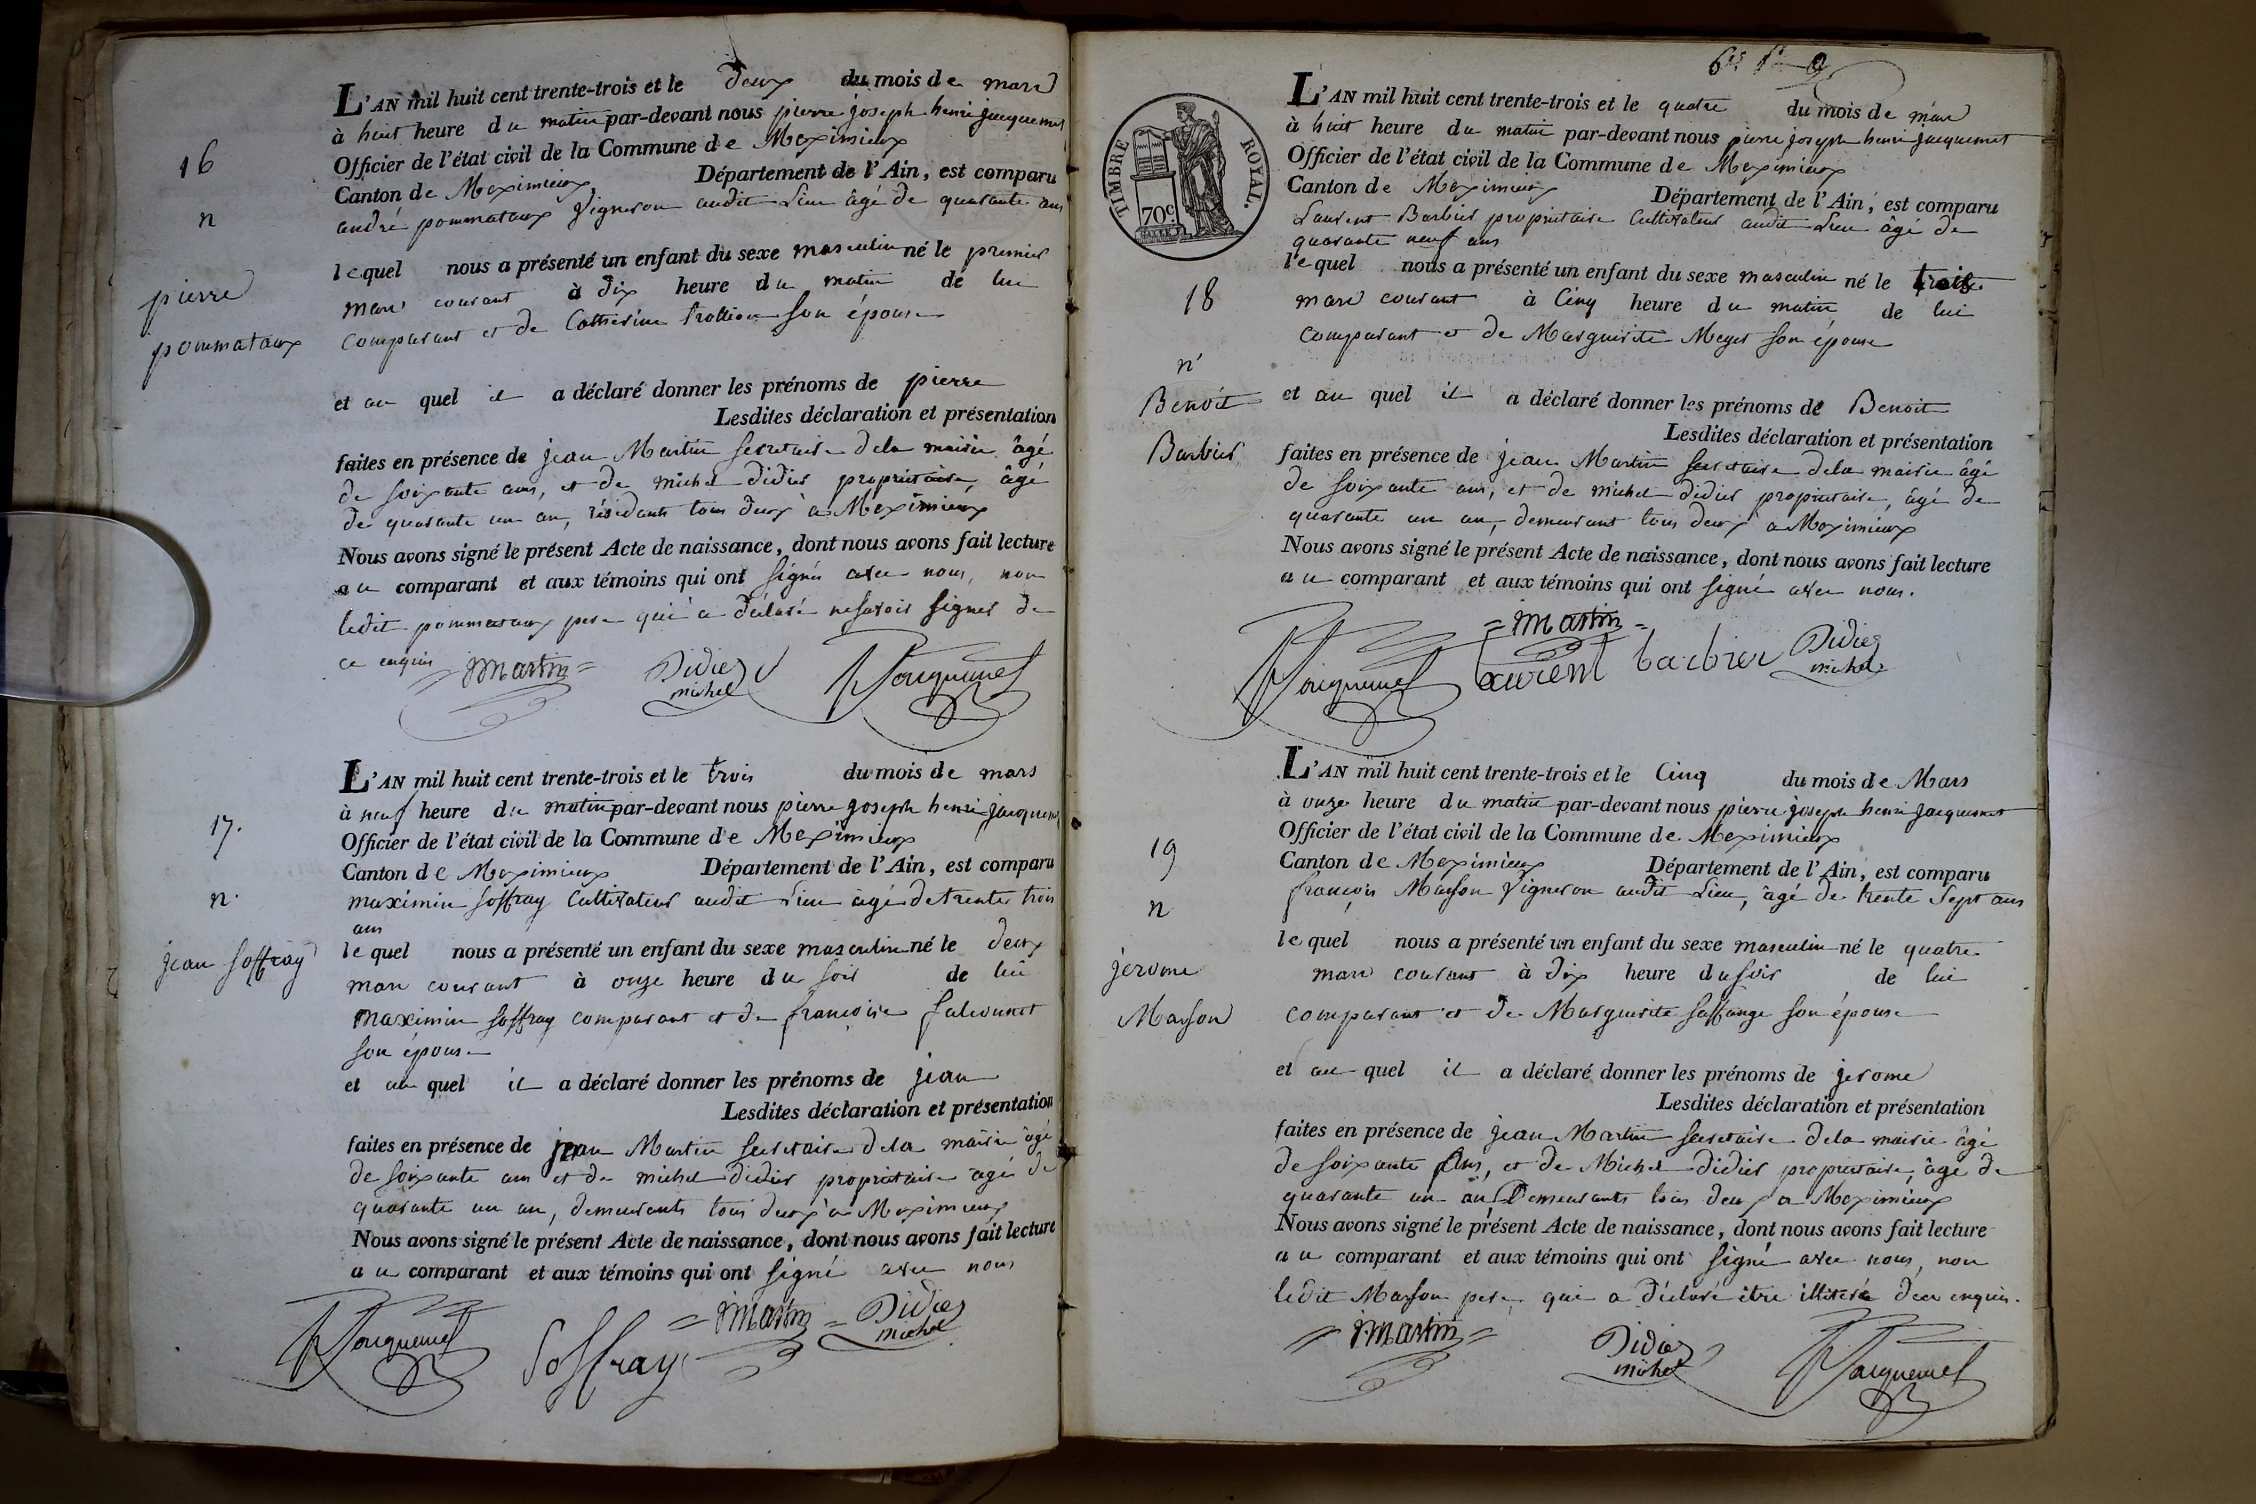 L'AN mil huit cent trente-trois et le deux du mois de mars
à huit heure du matin par-devant nous pierre joseph henri jacquemet
Officier de l'état civil de la Commune de Meximieux
16
Canton de Meximieux Département de l'Ain, est comparu
n
andré pommataux Vigneron audit Lieu âgé de quarante ans
lequel nous a présenté un enfant du sexe masculin né le premier
pierre
mars courant à dix heure du matin de lui
pommataux
comparant et de Catherine son épouse
et au quel il a déclaré donner les prénoms de pierre
Lesdites déclaration et présentation
faites en présence de jean Martin secretaire dela mairie âgé
de soixante ans, et de michel didier propriétaire, âgé
de quarante un an, résidants tous deux à Meximieux
Nous avons signé le présent Acte de naissance, dont nous avons fait lecture
au comparant et aux témoins qui ont signés avec nous, non
ledit pommataux pere qui a déclaré ne savoir signer de
ce enquis Martin Didier michel Jacquemet
L'AN mil huit cent trente-trois et le trois du mois de mars
à neuf heure du matin par-devant nous pierre joseph henri jacquemet
17.
Officier de l'état civil de la Commune de Meximieux
Canton de Meximieux Département de l'Ain, est comparu
n.
maximin soffray Cultivateur audit Lieu âgé de trente trois
ans
lequel nous a présenté un enfant du sexe masculin né le deux
jean soffray
mars courant à onze heure du soir de lui
maximin soffray comparant et de françoise falconnet
son épouse
et au quel il a déclaré donner les prénoms de jean
Lesdites déclaration et présentation
faites en présence de jean Martin secretaire dela mairie âgé
de soixante ans et de michel didier propriétaire âgé de
quarante un an, demeurants tous deux à Meximieux
Nous avons signé le présent Acte de naissance, dont nous avons fait lecture
au comparant et aux témoins qui ont signé avec nous
Jacquemet Soffray Martin Didier michel
TIMBRE ROYAL.
70c
L'AN mil huit cent trente-trois et le quatre du mois de mars
à huit heure du matin par-devant nous pierre joseph henri jacquemet
Officier de l'état civil de la Commune de Meximieux
Canton de Meximieux Département de l'Ain, est comparu
Laurent Barbier propriétaire Cultivateur audit Lieu âgé de
quarante neuf ans
lequel nous a présenté un enfant du sexe masculin né le trois
18
mars courant à Cinq heure du matin de lui
comparant et de Marguerite Meyet son épouse
n
Benoit
et au quel il a déclaré donner les prénoms de Benoit
Lesdites déclaration et présentation
Barbier
faites en présence de jean Martin secretaire dela mairie âgé
de soixante ans, et de michel didier propriétaire, âgé de
quarante un an, demeurant tous deux a Meximieux
Nous avons signé le présent Acte de naissance, dont nous avons fait lecture
au comparant et aux témoins qui ont signé avec nous.
Jacquemet Martin Laurent barbier Didier michel
L'AN mil huit cent trente-trois et le Cinq du mois de Mars
à onze heure du matin par-devant nous pierre joseph henri jacquemet
Officier de l'état civil de la Commune de Meximieux
19
Canton de Meximieux Département de l'Ain, est comparu
n
françois Masson Vigneron audit Lieu, âgé de trente Sept ans
lequel nous a présenté un enfant du sexe masculin né le quatre
jerome
mars courant à dix heure du soir de lui
Masson
comparant et de Marguerite saffange son épouse
et au quel il a déclaré donner les prénoms de jerome
Lesdites déclaration et présentation
faites en présence de jean Martin secretaire dela mairie âgé
de soixante Ans, et de Michel didier propriétaire, âgé de
quarante un an Demeurants tous deux a Meximieux
Nous avons signé le présent Acte de naissance, dont nous avons fait lecture
au comparant et aux témoins qui ont signé avec nous, non
ledit Masson pere, qui a déclaré être illitéré de ce enquis.
Martin Didier michel Jacquemet